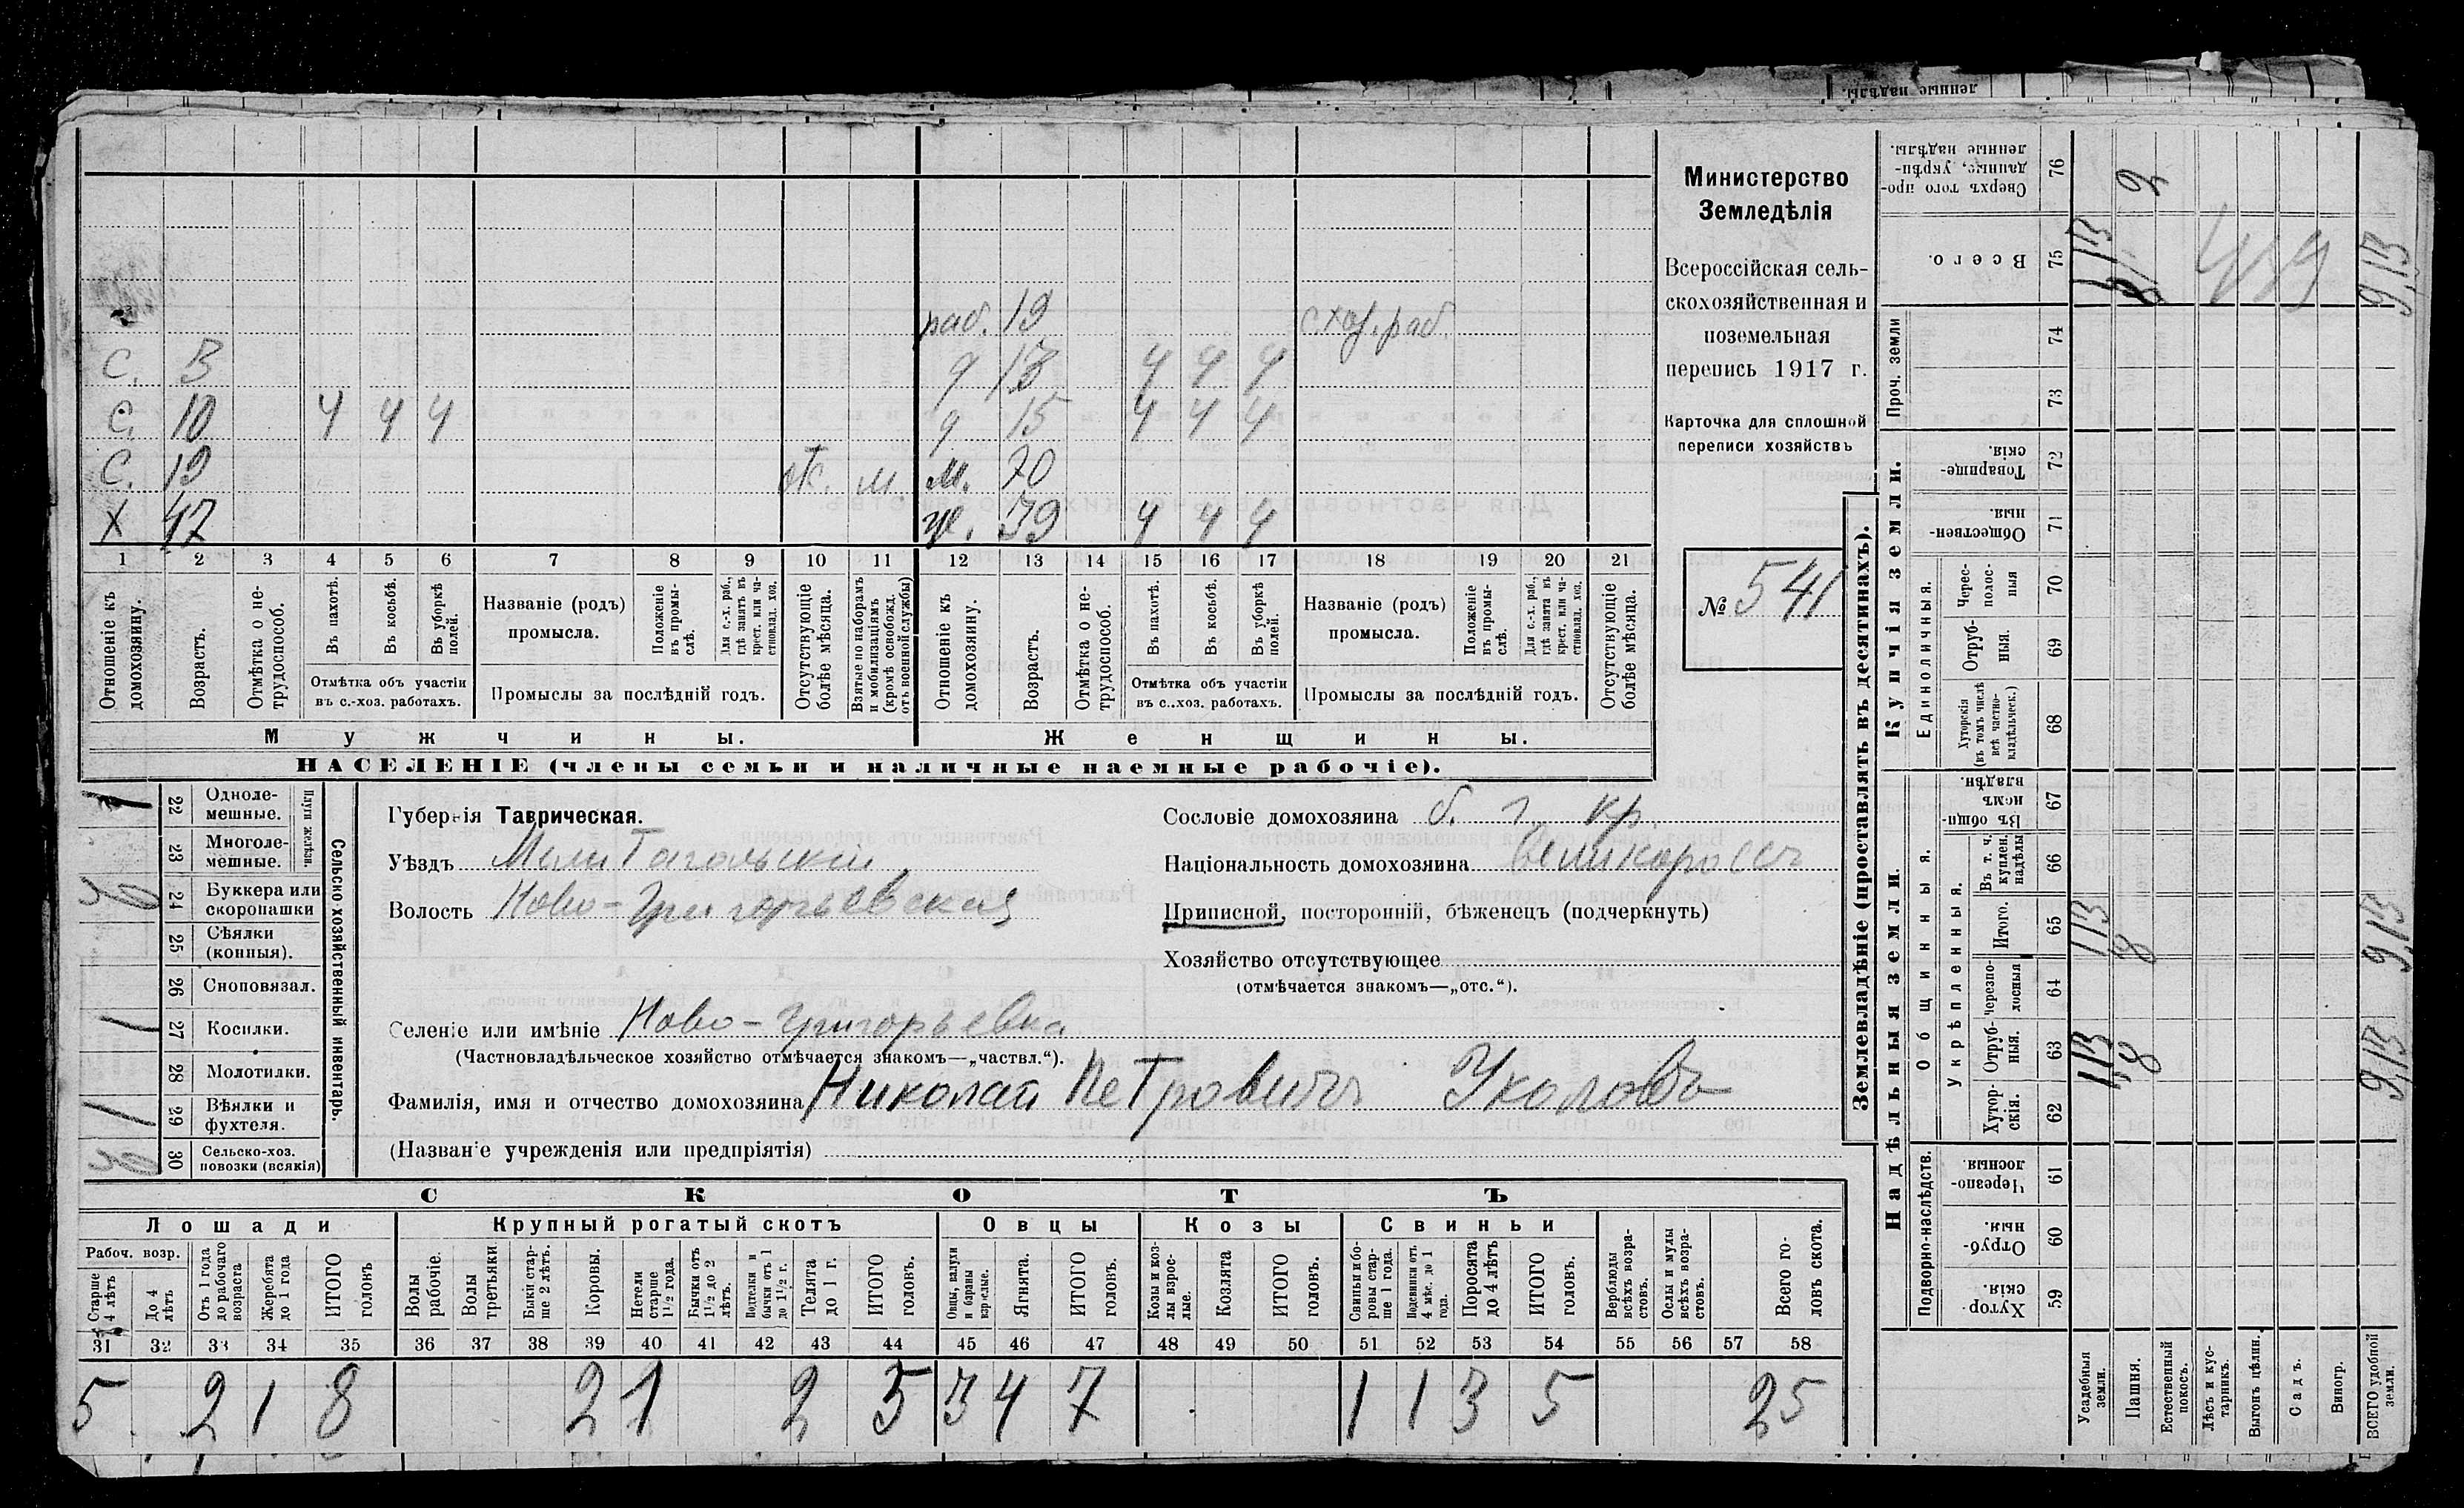 раб. 19 с.хоз. раб.
С. 3 д 13 ч ч ч
С. 10 ч ч ч д 15 ч ч ч
С. 19 от. м м. 70
Х 47 ж. 39 ч ч ч
1 2 3 4 5 6 7 8 9 10 11 12 13 14 15 16 17 18 19 20 21
Отношеніе къ домохозяину.
Возрастъ.
Отмѣтка о нетрудоспособ.
Въ пахотѣ.
Въ косьбѣ.
Въ уборкѣ полей.
Отмѣтка объ участіи въ с.-хоз. работахъ.
Названіе (родъ) промысла.
Положеніе въ промыслѣ.
Для с.-х. раб., гдѣ занятъ въ крест. или частновлад. хоз.
Промыслы за послѣдній годъ.
Отсутствующіе болѣе мѣсяца.
Взятые по наборамъ и мобилизаціямъ (кромѣ освобожд. отъ военной службы)
Отношеніе къ домохозяину.
Возрастъ.
Отмѣтка о нетрудоспособ.
Въ пахотѣ.
Въ косьбѣ.
Въ уборкѣ полей.
Отмѣтка объ участіи въ с..хоз. работахъ.
Названіе (родъ) промысла.
Положеніе въ промыслѣ.
Для с.-х. раб., гдѣ занята въ крест. или частновлад. хоз.
Промыслы за послѣдній годъ.
Отсутствующіе болѣе мѣсяца.
Мужчины. Женщины.
НАСЕЛЕНІЕ (члены семьи и наличные наемные рабочіе).
Министерство
Земледѣлія
Всероссійская сель-
скохозяйственная и
поземельная
перепись 1917 г.
Карточка для сплошной
переписи хозяйствъ
№ 541
1 22 Однолемешные.
23 Многолемешные.
24 Буккера или скоропашки
25 Сѣялки (конныя).
26 Сноповязал.
1 27 Косилки.
28 Молотилки.
1 29 Вѣялки и фухтеля.
30 Сельско-хоз. повозки (всякія)
Плуги желѣзн.
Сельско-хозяйственный инвентарь.
Губернія Таврическая.
Уѣздъ Мелитопольскій
Волость Ново-Григорьевская
Селеніе или имѣніе Ново-Григорьевка
(Частновладѣльческое хозяйство отмѣчается знакомъ—„частвл.“).
Фамилія, имя и отчество домохозяина Николай Петровичъ Уколовъ
(Названіе учрежденія или предпріятія)
Сословіе домохозяина б. г. кр.
Національность домохозяина Великороссъ
Приписной, посторонній, бѣженецъ (подчеркнуть)
Хозяйство отсутствующее
(отмѣчается знакомъ—„отс.“).
СКОТЪ
Лошади Крупный рогатый скотъ Овцы Козы Свиньи
Рабоч. возр.
Старше 4 лѣтъ
До 4 лѣтъ
Отъ 1 года до рабочаго возраста
Жеребята до 1 года
ИТОГО головъ
Волы рабочіе.
Волы третьяки
Быки старше 2 лѣтъ.
Коровы.
Нетели старше 1½ года.
Бычки отъ 1½ до 2 лѣтъ.
Подтелки и бычки отъ 1 до 1½ г.
Телята до 1 г.
ИТОГО головъ.
Овцы, валухи и бараны взрослые.
Ягнята.
ИТОГО головъ.
Козы и козлы взрослые.
Козлята
ИТОГО головъ.
Свиньи и боровы старше 1 года.
Подсвинки отъ 4 мѣс. до 1 года.
Поросята до 4 лѣтъ
ИТОГО головъ.
Верблюды всѣхъ возрастовъ.
Ослы и мулы всѣхъ возрастовъ.
Всего головъ скота.
31 32 33 34 35 36 37 38 39 40 41 42 43 44 45 46 47 48 49 50 51 52 53 54 55 56 57 58
5 2 1 8 2 1 2 5 3 4 7 1 1 3 5 25
Землевладѣніе (проставлять въ десятинахъ).
Купчія земли.
Надѣльныя земли.
Сверхъ того проданные, укрѣпленные надѣлы. 76 2
Всего. 75 9,13
Проч. земли 74 73
Товарищескія. 72
Общественныя. 71
Единоличныя.
Чресполосныя 70
Отрубныя. 69
Хуторскія (въ томъ числѣ всѣ частновладѣльческ.) 68
Общинныя.
Въ общемъ владѣн. 67
Укрѣпленныя.
Въ т. ч. куплен. надѣлы 66
Итого. 65 1,13 8 9,13
Черезполосныя 64
Отрубныя. 63 1,13 8 9,13
Хуторскія. 62
Подворно-наслѣдств.
Черезполосныя. 61
Отрубныя. 60
Хуторскія. 59
Усадебныя земли.
Пашня.
Естественный покосъ.
Лѣсъ и кустарникъ.
Выгонъ цѣлин.
Садъ.
Виногр.
ВСЕГО удобной земли.
ленные надѣлы.